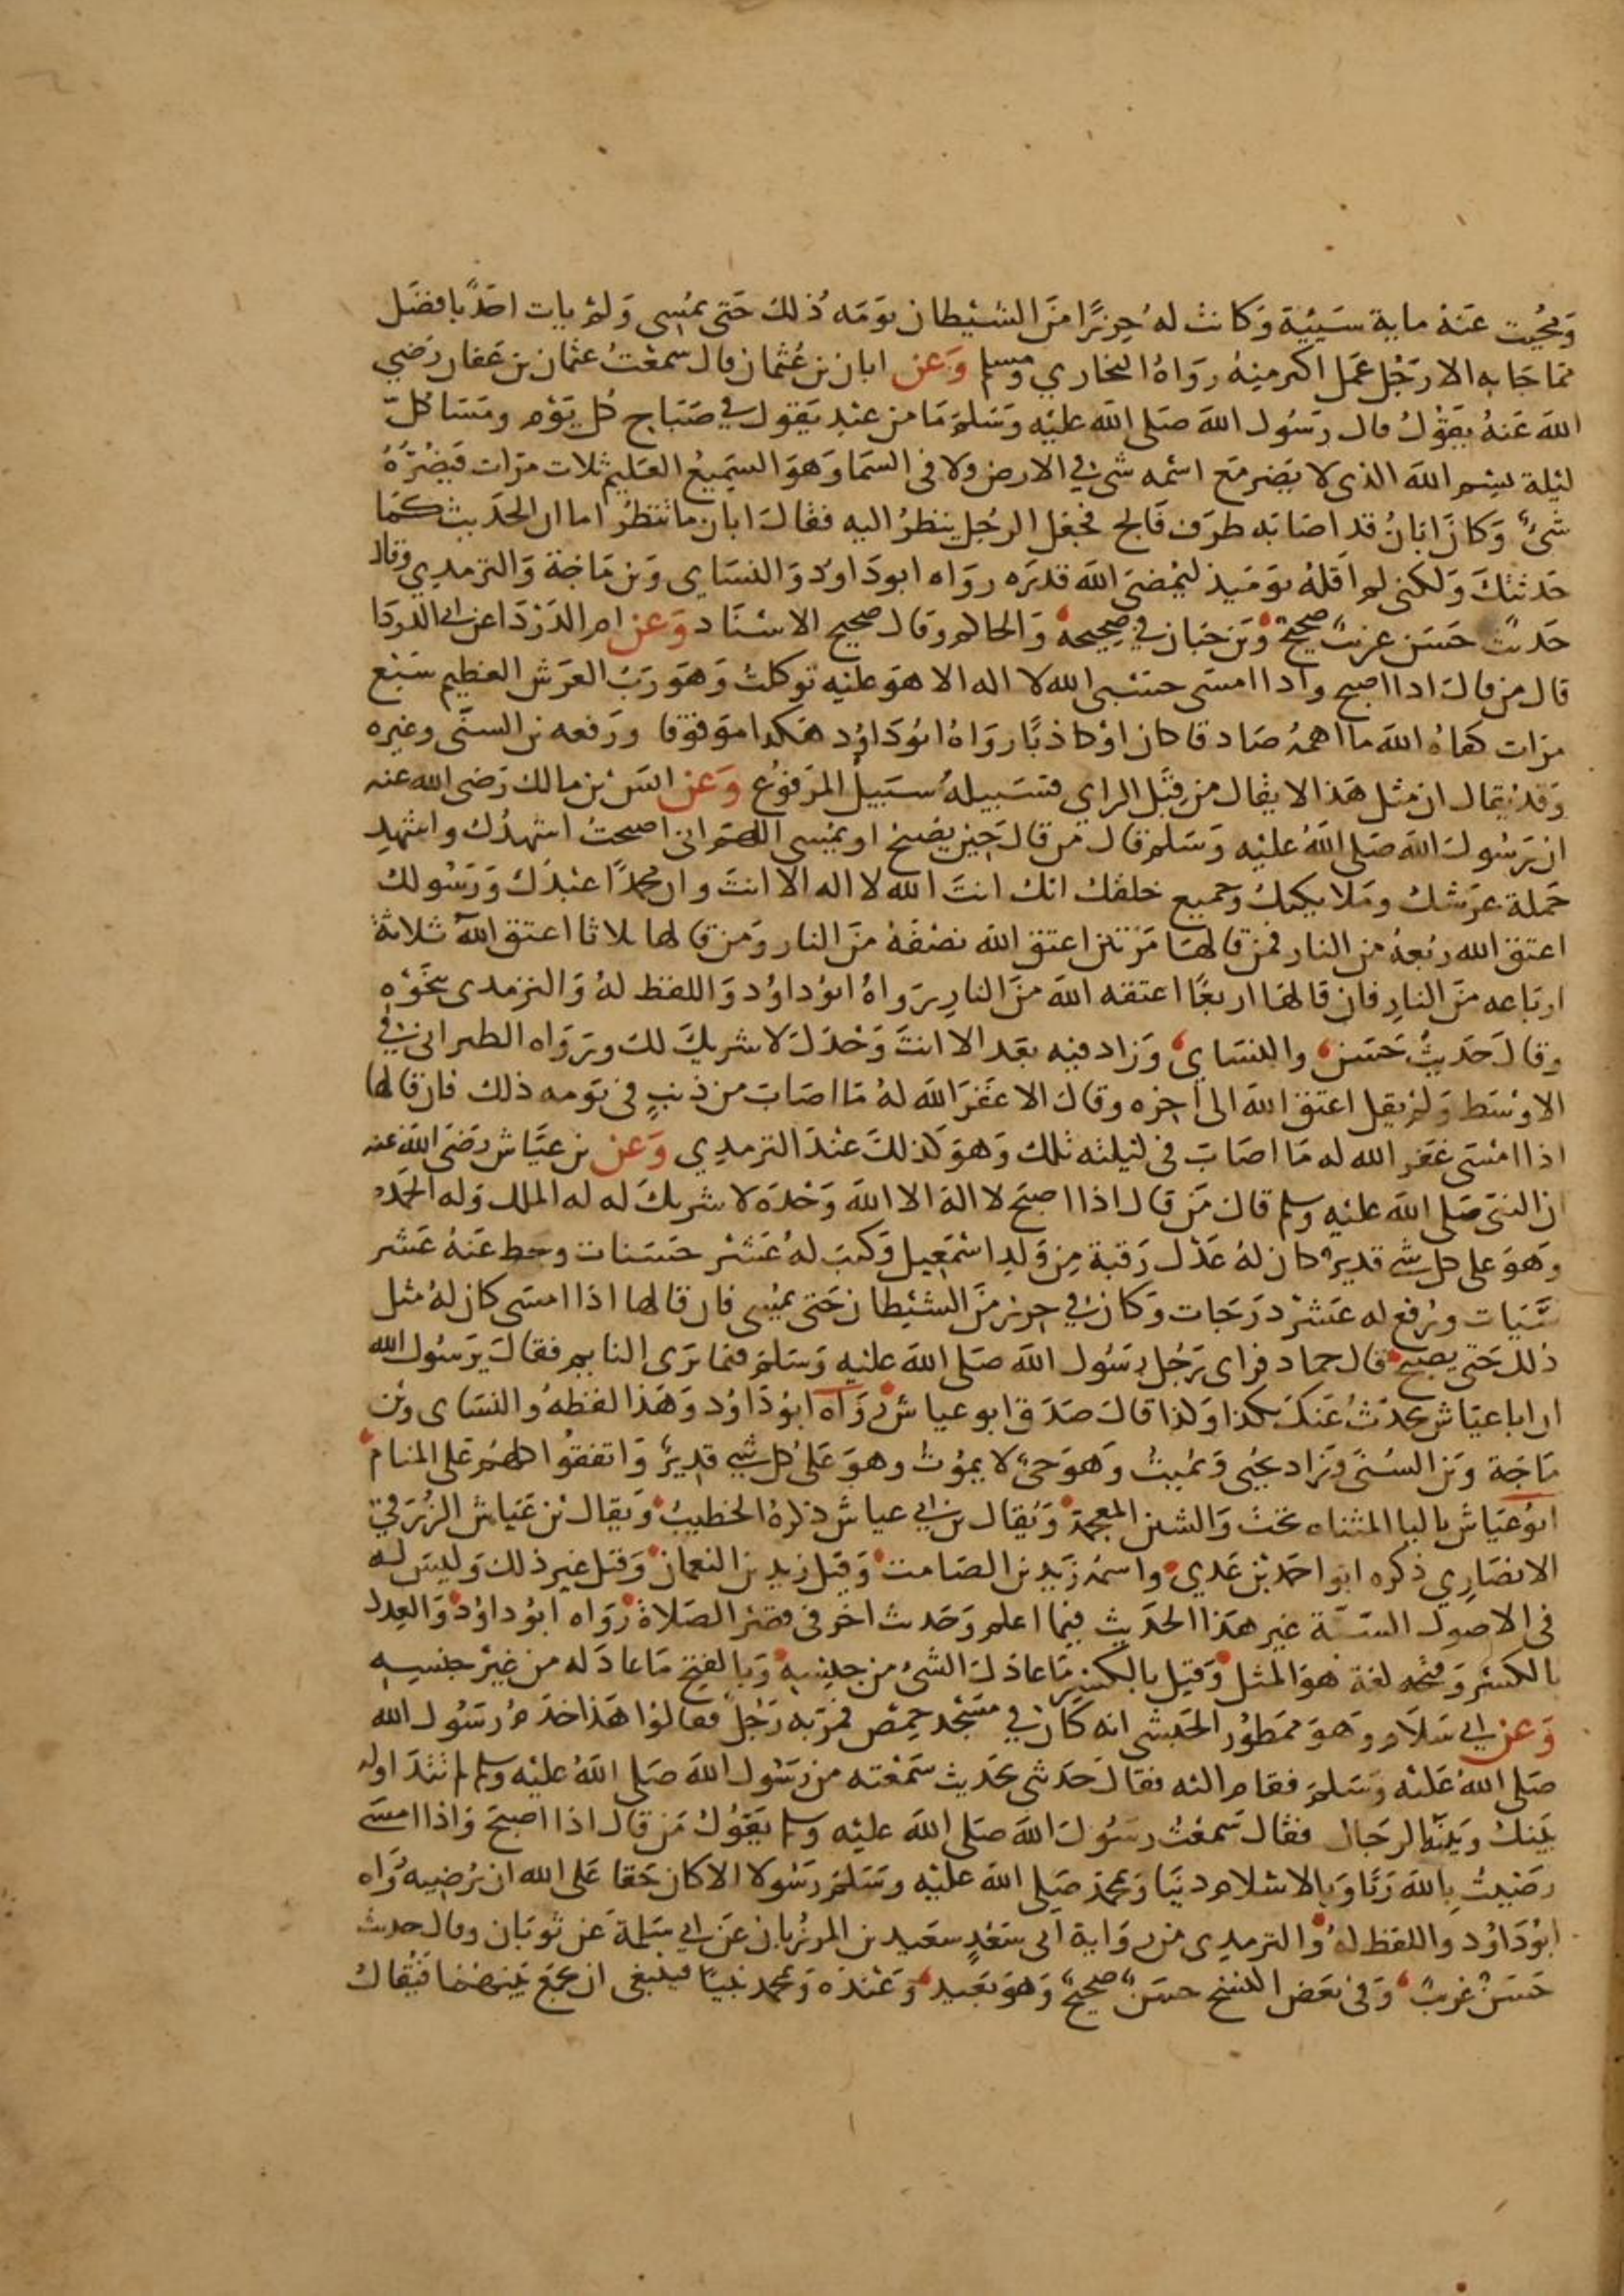 ومحيت عنه ماية سيئية وكانت له حرزا من الشيطان يومه ذلك حتى يمسى ولم يات احد بافضل
مما جا به الا رجل عمل اكثر منه رواه البخاري ومسلم وعن ابان بن عثمان قال سمعت عثمان بن عفان رضي
الله عنه يقول قال رسول الله صلى الله عليه وسلم ما من عبد يقول في صباح كل يوم ومسا كل
ليلة بسم الله الذى لا يضر مع اسمه شى في الارض ولا فى السما وهو السميع العليم ثلاث مرات فيضره
شئ وكان ابان قد اصابه طرف فالج فجعل الرجل ينظر اليه فقال ابان ما تنظر اما ان الحديث كما
حدثتك ولكنى لم اقله يوميذ ليمضى الله قدره رواه ابو داود والنساى وبن ماجة والترمدي وقال
حديث حسن غريب صحيح وبن حبان في صحيحه والحاكم وقال صحيح الاسناد وعن ام الدردا عن ابى الدردا
قال من قال ادا اصبح وادا امسى حسبى الله لا اله الا هو عليه توكلت وهو رب العرش العظيم سبع
مرات كفاه الله ما اهمه صادقا كان او كاذبا رواه ابو داود هكدا موقوفا ورفعه بن السنى وغيره
وقد يقال ان مثل هذا لا يقال من قبل الراي فسبيله سبيل المرفوع وعن انس بن مالك رضى الله عنه
ان رسول الله صلى الله عليه وسلم قال من قال حين يصبح او يمسى اللهم انى اصبحت اشهدك واشهد
حملة عرشك وملايكتك وجميع خلقك انك انت الله لا اله الا انت وان محمدا عبدك ورسولك
اعتق الله ربعه من النار فمن قالها مرتين اعتق الله نصفه من النار ومن قالها ثلاثا اعتق الله ثلاثة
ارباعه من النار فان قالها اربعا اعتقه الله من النار رواه ابو داود واللفظ له والترمدى بنحوه
وقال حديث حسن والنساي وزاد فيه بعد الا انت وحدك لا شريك لك ورواه الطبرانى في
الاوسط ولم يقل اعتق الله الى اخره وقال الا غفر الله له ما اصاب من ذنب فى يومه ذلك فان قالها
اذا امسى غفر الله له ما اصاب فى ليلته تلك وهو كذلك عند الترمدي وعن بن عياش رضى الله عنه
ان النبى صلى الله عليه وسلم قال من قال اذا اصبح لا اله الا الله وحده لا شريك له له الملك وله الحمد
وهو على كل شى قدير كان له عدل رقبة من ولد اسمعيل وكتب له عشر حسنات وحط عنه عشر
سييات ورفع له عشر درجات وكان في حرز من الشيطان حتى يمسى فان قالها اذا امسى كان له مثل
ذلك حتى يصبح قال حماد فراى رجل رسول الله صلى الله عليه وسلم فيما يرى النايم فقال يرسول الله
ان ابا عياش يحدث عنك بكذا وكذا قال صدق ابو عياش رواه ابو داود وهذا لفظه والنساى وبن
ماجة وبن السنى وزاد يحيى ويميت وهو حى لا يموت وهو على كل شى قدير واتفقوا كلهم على المنام
ابو عياش باليا المثناه تحت والشين المعجمة ويقال بن ابي عياش ذكره الخطيب ويقال بن عياش الزرقي
الانصاري ذكره ابو احمد بن عدي واسمه زيد بن الصامت وقيل زيد بن النعمان وقيل غير ذلك وليس له
فى الاصول الستة غير هذا الحديث فيما اعلم وحديث اخر فى قصر الصلاة رواه ابو داود والعدل
بالكسر وفتحه لغة هو المثل وقيل بالكسر ما عادل الشئ من جنسه وبالفتح ما عادله من غير جنسه
وعن ابي سلام وهو ممطور الحبشى انه كان في مسجد حمص فمر به رجل فقالوا هذا خدم رسول الله
صلى الله عليه وسلم فقام اليه فقال حدثنى بحديث سمعته من رسول الله صلى الله عليه وسلم لم تتداوله
بينك وبينه الرجال فقال سمعت رسول الله صلى الله عليه وسلم يقول من قال اذا اصبح واذا امسى
رضيت بالله ربا وبالاسلام دينا وبمحمد صلى الله عليه وسلم رسولا الا كان حقا على الله ان يرضيه رواه
ابو داود واللفظ له والترمدى من رواية ابى سعد سعيد بن المرزبان عن ابي سلمة عن ثوبان وقال حديث
حسن غريب وفى بعض النسخ حسن صحيح وهو بعيد وعنده وبمحمد نبيا فينبغى ان يجمع بينهما فيقال